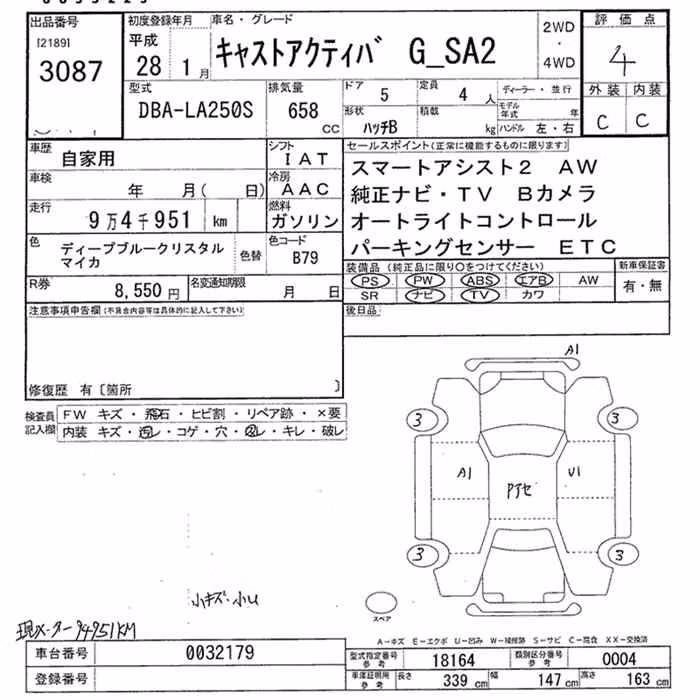 出品番号
[2189]
3087
初度登録年月
平成
28 1月
車名・グレード
キャストアクティバ G_SA2
2WD
・
4WD
評価点
4
外装 内装
C C
型式
DBA-LA250S
排気量
658
CC
ドア 5
定員 4 人
ディーラー・並行
モデル年式 年
形状 ハッチB
積載 kg
ハンドル 左・右
車歴 自家用
シフト IAT
車検 年 月( 日)
冷房 AAC
走行 9万4千951 km
燃料 ガソリン
色 ディープブルークリスタルマイカ
色替
色コード B79
R券 8,550 円
名変通知期限 月 日
セールスポイント(正常に機能するものに限ります)
スマートアシスト2 AW
純正ナビ・TV Bカメラ
オートライトコントロール
パーキングセンサー ETC
装備品 (純正品に限り○をつけてください)
PS PW ABS エアB AW
SR ナビ TV カワ
新車保証書
有・無
後日品
注意事項申告欄(不具合内容等は具体的に記入して下さい)
修復歴 有〔箇所 〕
検査員記入欄
FW キズ・飛石・ヒビ割・リペア跡・×要
内装 キズ・汚レ・コゲ・穴・凹レ・キレ・破レ
A1
3 3
A1 U1
Pアセ
3 3
スペア
小キズ・小U
現メーター94951KM
A-キズ E-エクボ U-凹み W-補修跡 S-サビ C-腐食 XX-交換済
車台番号 0032179
登録番号
型式指定番号参考 18164
類別区分番号参考 0004
車庫証明用参考
長さ 339 cm
幅 147 cm
高さ 163 cm